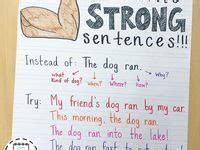 STRONG
sentences!!!
Instead of: The dog ran.
what kind of dog? when? where? how? why?
Try: My friend's dog ran by my car.
This morning, the dog ran.
The dog ran into the lake!
The dog ran fast